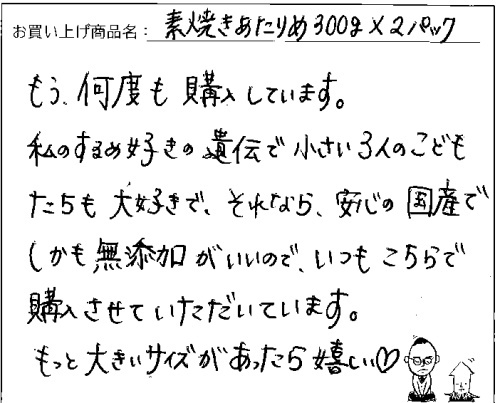 お買い上げ商品名：素焼きあたりめ300g×2パック
もう、何度も購入しています。
私のするめ好きの遺伝で小さい3人のこども
たちも大好きで、それなら、安心の国産で
しかも無添加がいいので、いつもこちらで
購入させていただいています。
もっと大きいサイズがあったら嬉しい♡